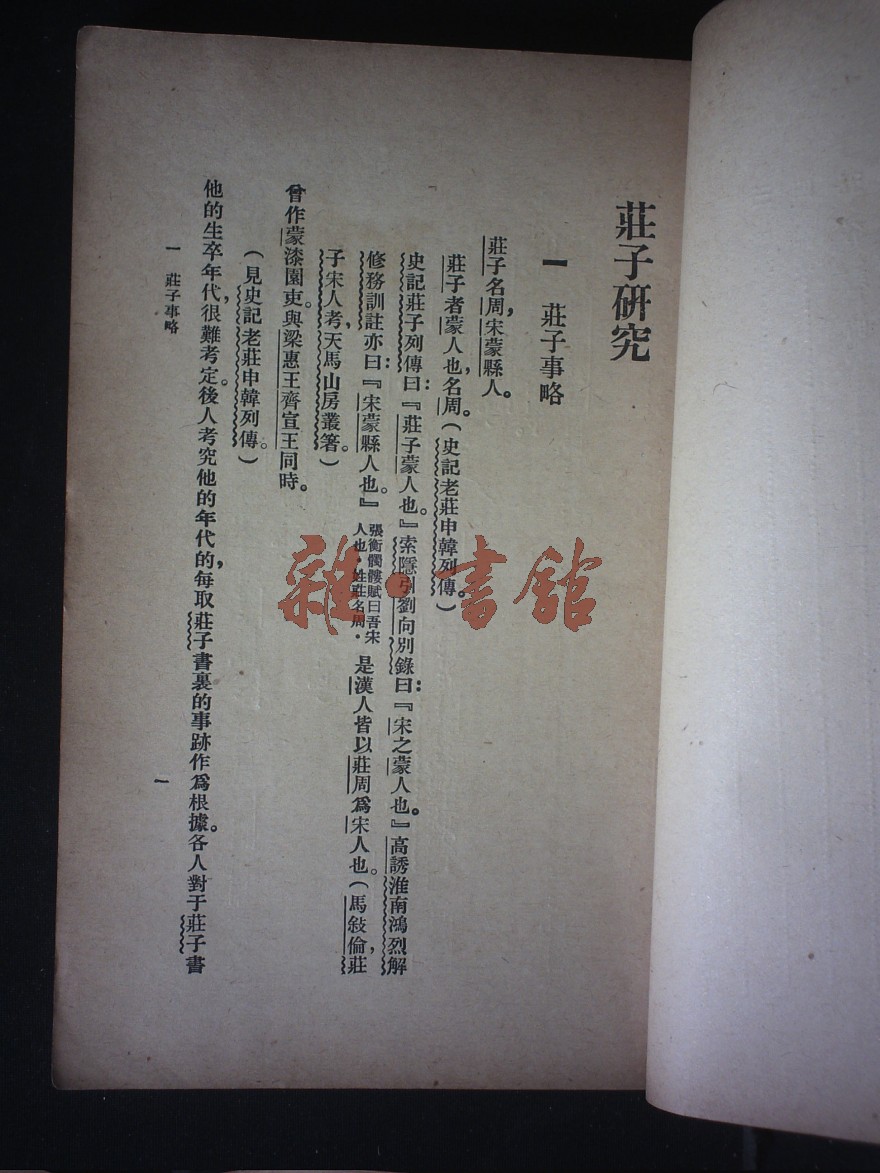 莊子研究
一　莊子事略
莊子名周，宋蒙縣人。
莊子者蒙人也，名周。（史記老莊申韓列傳。）
史記莊子列傳曰：『莊子蒙人也。』索隱引劉向別錄曰：『宋之蒙人也。』高誘淮南鴻烈解
修務訓註亦曰：『宋蒙縣人也。』張衡髑髏賦曰吾宋人也·姓莊名周·是漢人皆以莊周爲宋人也。（馬敍倫，莊
子宋人考，天馬山房叢箸。）
曾作蒙漆園吏。與梁惠王齊宣王同時。
（見史記老莊申韓列傳。）
他的生卒年代，很難考定。後人考究他的年代的，每取莊子書裏的事跡作爲根據。各人對于莊子書
一　莊子事略
一
雜·書館